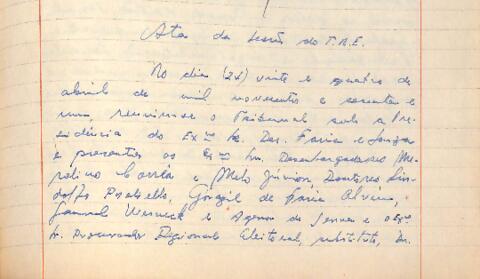 Ata da sessão do T.R.E.
No dia (24) vinte e quatro de
abril de mil novecentos e sessenta e
um, reuniu-se o Tribunal sob a Pre-
sidência do Exmo Sr. Des. Faria e Souza
e presentes os Exmos Srs. Desembargadores Me-
rolino Corrêa e Melo Júnior Doutores Lin-
dolfo Gonzil de Faria Alvim,
Samuel Werneck e Agenor de Senna e o Exmo
Sr. Procurador Regional Eleitoral, substituto, Dr.